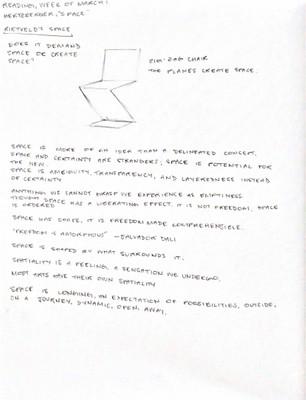 READING, WEEK OF MARCH 1
HERTZBERGER, "SPACE"
RIETVELD'S SPACE
DOES IT DEMAND
SPACE OR CREATE
SPACE?
ZIG-ZAG CHAIR
THE PLANES CREATE SPACE.
SPACE IS MORE OF AN IDEA THAN A DELINEATED CONCEPT.
SPACE AND CERTAINTY ARE STRANGERS; SPACE IS POTENTIAL FOR
THE NEW.
SPACE IS AMBIGUITY, TRANSPARENCY, AND LAYEREDNESS INSTEAD
OF CERTAINTY
ANYTHING WE CANNOT GRASP WE EXPERIENCE AS EMPTINESS
THOUGH SPACE HAS A LIBERATING EFFECT, IT IS NOT FREEDOM. SPACE
IS ORDERED
SPACE HAS SHAPE, IT IS FREEDOM MADE COMPREHENSIBLE.
"FREEDOM IS AMORPHOUS" —SALVADOR DALI
SPACE IS SHAPED BY WHAT SURROUNDS IT.
SPATIALITY IS A FEELING, A SENSATION WE UNDERGO.
MOST ARTS HAVE THEIR OWN SPATIALITY
SPACE IS LONGING, AN EXPECTATION OF POSSIBILITIES, OUTSIDE,
ON A JOURNEY, DYNAMIC, OPEN, AWAY.